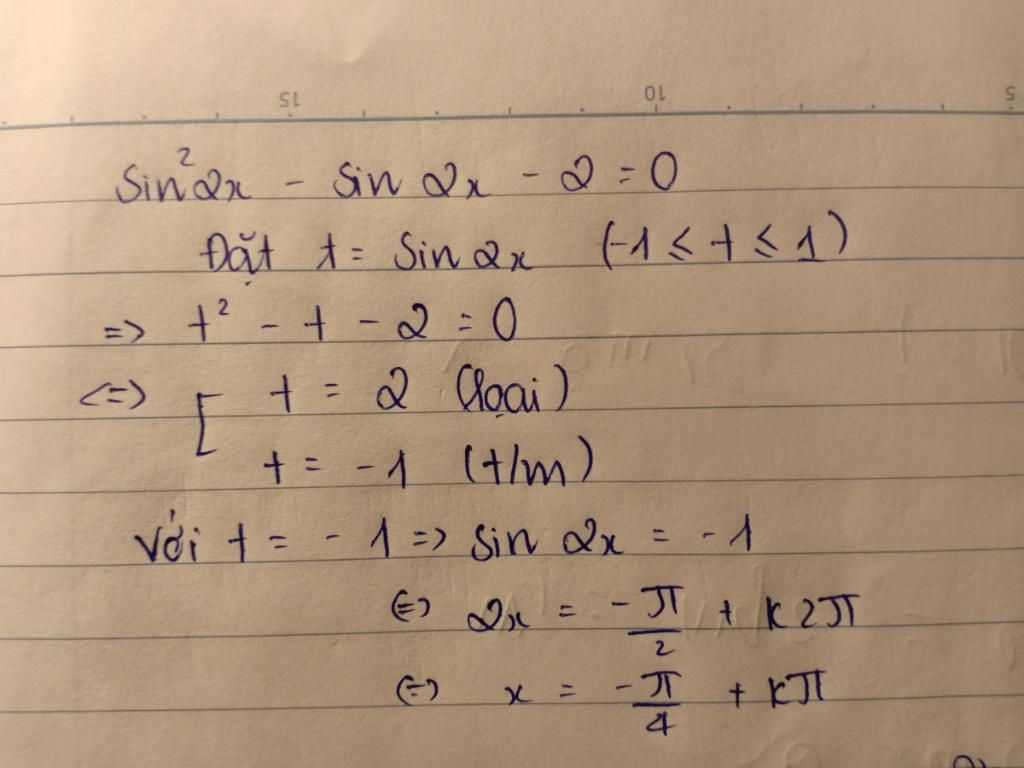 15 10 5
sin²2x - sin 2x - 2 = 0
Đặt t = sin 2x (-1 ≤ t ≤ 1)
=> t² - t - 2 = 0
<=> [ t = 2 (loại)
t = -1 (t/m)
Với t = -1 => sin 2x = -1
<=> 2x = -π/2 + k2π
<=> x = -π/4 + kπ